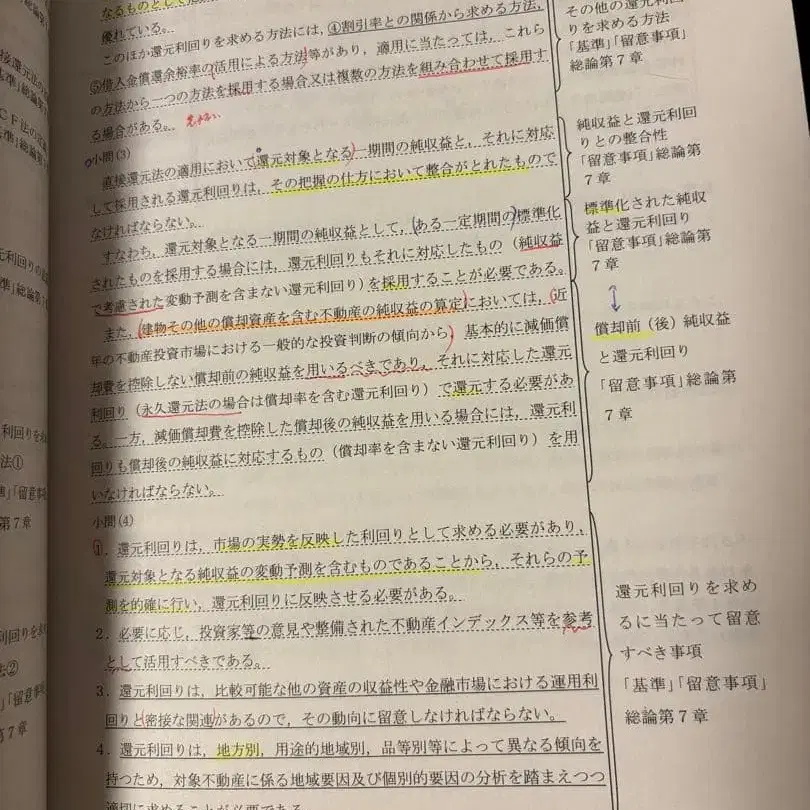 なるものとして
優れている。
このほか還元利回りを求める方法には,④割引率との関係から求める方法,
⑤借入金償還余裕率の活用による方法等があり,適用に当たっては,これら
の方法から一つの方法を採用する場合又は複数の方法を組み合わせて採用す
る場合がある。
小問(3)
直接還元法の適用において還元対象となる一期間の純収益と,それに対応
して採用される還元利回りは,その把握の仕方において整合がとれたもので
なければならない。
すなわち,還元対象となる一期間の純収益として,ある一定期間の標準化
されたものを採用する場合には,還元利回りもそれに対応したもの(純収益
で考慮された変動予測を含まない還元利回り)を採用することが必要である。
また,建物その他の償却資産を含む不動産の純収益の算定においては,近
年の不動産投資市場における一般的な投資判断の傾向から,基本的に減価償
却費を控除しない償却前の純収益を用いるべきであり,それに対応した還元
利回り(永久還元法の場合は償却率を含む還元利回り)で還元する必要があ
る。一方,減価償却費を控除した償却後の純収益を用いる場合には,還元利
回りも償却後の純収益に対応するもの(償却率を含まない還元利回り)を用
いなければならない。
小問(4)
1.還元利回りは,市場の実勢を反映した利回りとして求める必要があり,
還元対象となる純収益の変動予測を含むものであることから,それらの予
測を的確に行い,還元利回りに反映させる必要がある。
2.必要に応じ,投資家等の意見や整備された不動産インデックス等を参考
として活用すべきである。
3.還元利回りは,比較可能な他の資産の収益性や金融市場における運用利
回りと密接な関連があるので,その動向に留意しなければならない。
4.還元利回りは,地方別,用途的地域別,品等別等によって異なる傾向を
持つため,対象不動産に係る地域要因及び個別的要因の分析を踏まえつつ
適切に求めることが必要である
その他の還元利回
りを求める方法
「基準」「留意事項」
総論第7章
純収益と還元利回
りとの整合性
「留意事項」総論第
7章
標準化された純収
益と還元利回り
「留意事項」総論第
7章
償却前(後)純収益
と還元利回り
「留意事項」総論第
7章
還元利回りを求め
るに当たって留意
すべき事項
「基準」「留意事項」
総論第7章